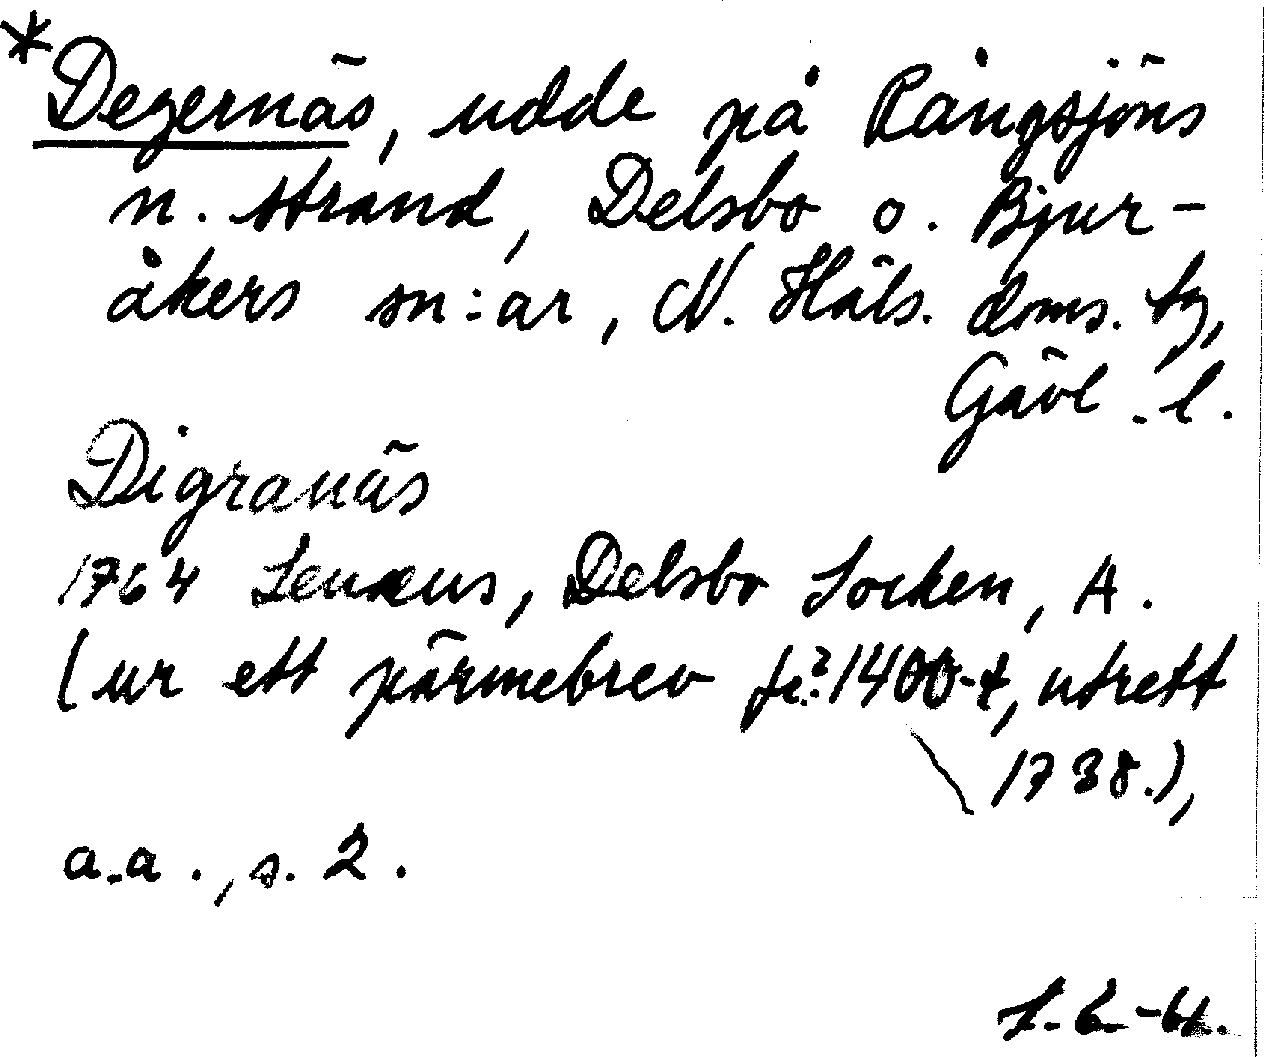 * Degernäs, udde på Rångsjöns
n. strand, Delsbo o. Bjur-
åkers sn:ar, N. Häls. doms.
Gävl. l.
Digranäs
1764 Lenæus, Delsbo Socken, A.
(ur ett pärmebrev fr.? 1400-t, utrett
1738.),
a.a., s. 2.